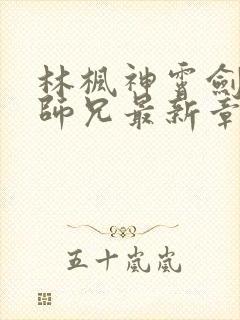 林楓神霄劍
師兄最新章
五十嵐嵐